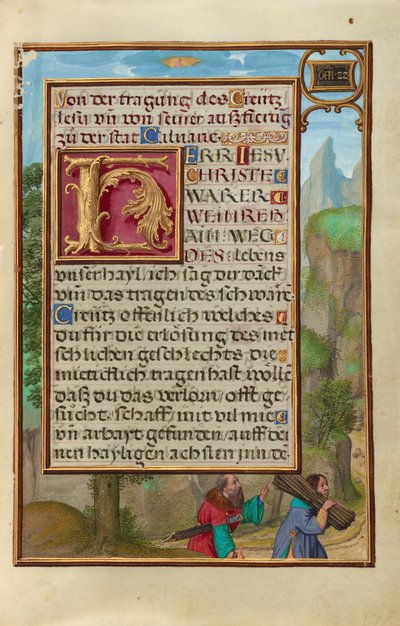 Gen. 22
Von der tragung des Creütz
Jesu vn̄ von seiner außfierug
zů der stat Calvarie.
HERR IESV
CHRISTE
WARER
WEINREB
AIN WEG
DES lebens
vnser hayl, ich sag dir danck
vm̄ das tragen des schwarē
Creütz offenlich welches
du für die erlösung des mēt
schlichen geschlechts die
mietiɛlich tragen hast wölle
daß du das verlorn, offt ge
sůcht schaff, mit vil mie
vn̄ arbayt gefunden, auff dei
nen hayligen achslen jn dē